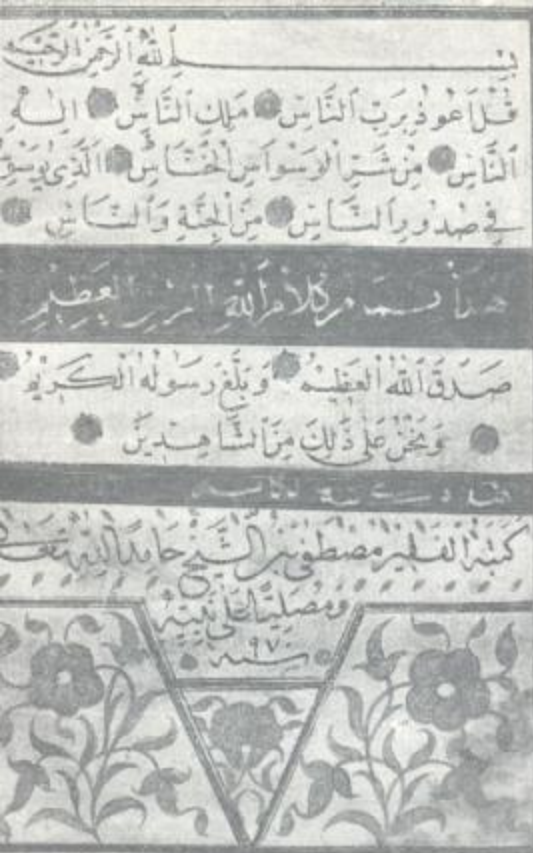 بِسْمِ اللهِ الرَّحْمٰنِ الرَّحِيمِ
قُلْ اَعُوذُ بِرَبِّ النَّاسِ مَلِكِ النَّاسِ اِلٰهِ
النَّاسِ مِنْ شَرِّ الْوَسْوَاسِ الْخَنَّاسِ الَّذِي يُوَسْوِ
فِي صُدُورِ النَّاسِ مِنَ الْجِنَّةِ وَالنَّاسِ
هذا من كلام الله العظيم
صَدَقَ اللهُ الْعَظِيمُ وَبَلَّغَ رَسُولُهُ الْكَرِيمُ
وَنَحْنُ عَلَى ذٰلِكَ مِنَ الشَّاهِدِينَ
كتبه الفقير مصطفى بن الشيخ حامدا لله تعالى
ومصليا على نبيه
سنة ٩٧٠